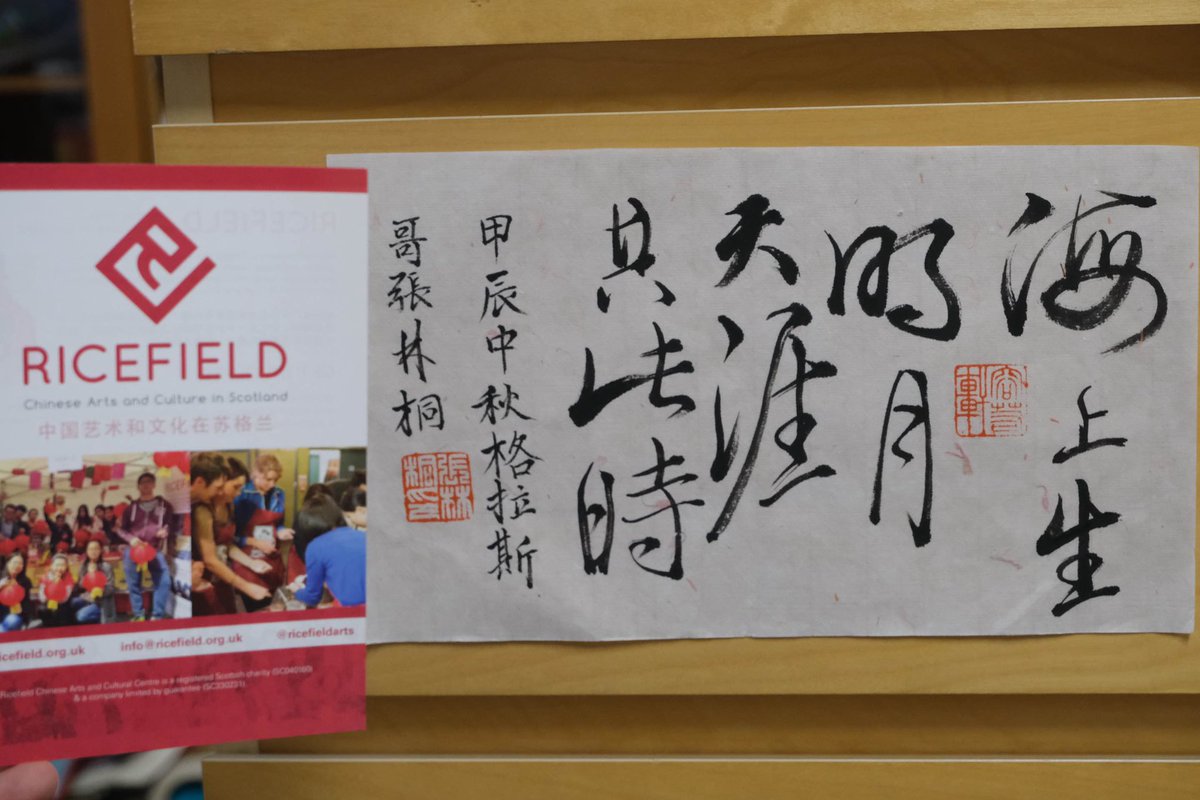 RICEFIELD
Chinese Arts and Culture in Scotland
中国艺术和文化在苏格兰
icefield.org.uk info@ricefield.org.uk @ricefieldarts
Ricefield Chinese Arts and Cultural Centre is a registered Scottish charity (SC040160)
& a company limited by guarantee (SC330251)
海上生
明月
天涯
共此時
甲辰中秋格拉斯
哥張林桐
張林桐印